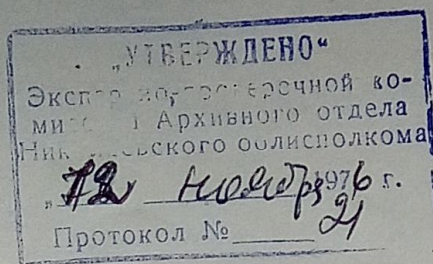 „УТВЕРЖДЕНО“
Экспертно-проверочной ко-
миссией Архивного отдела
Николаевского облисполкома
„12 ноября 1976 г.
Протокол № 21